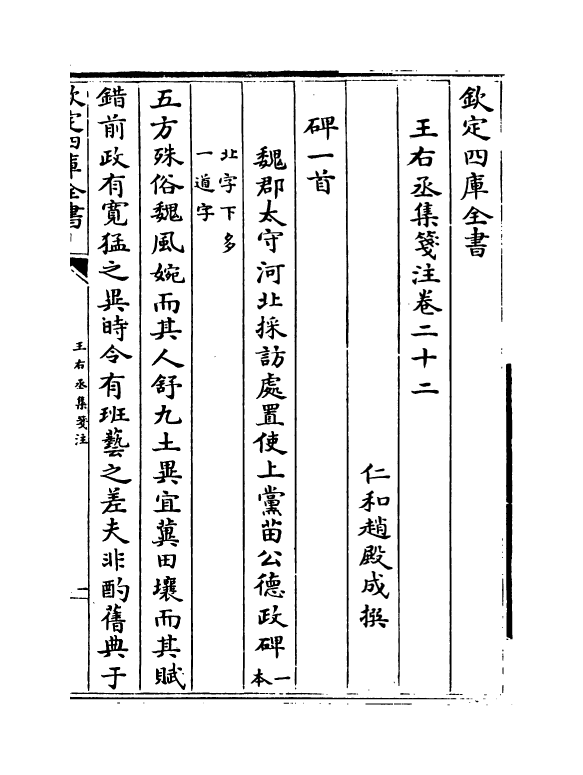 欽定四庫全書
王右丞集箋注卷二十二
仁和趙殿成撰
碑一首
魏郡太守河北採訪處置使上黨苗公德政碑一本
北字下多
一道字
五方殊俗魏風婉而其人舒九土異宜冀田壤而其賦
錯前政有寛猛之異時令有班藝之差夫非酌舊典于
欽定四庫全書
王右丞集箋注
一